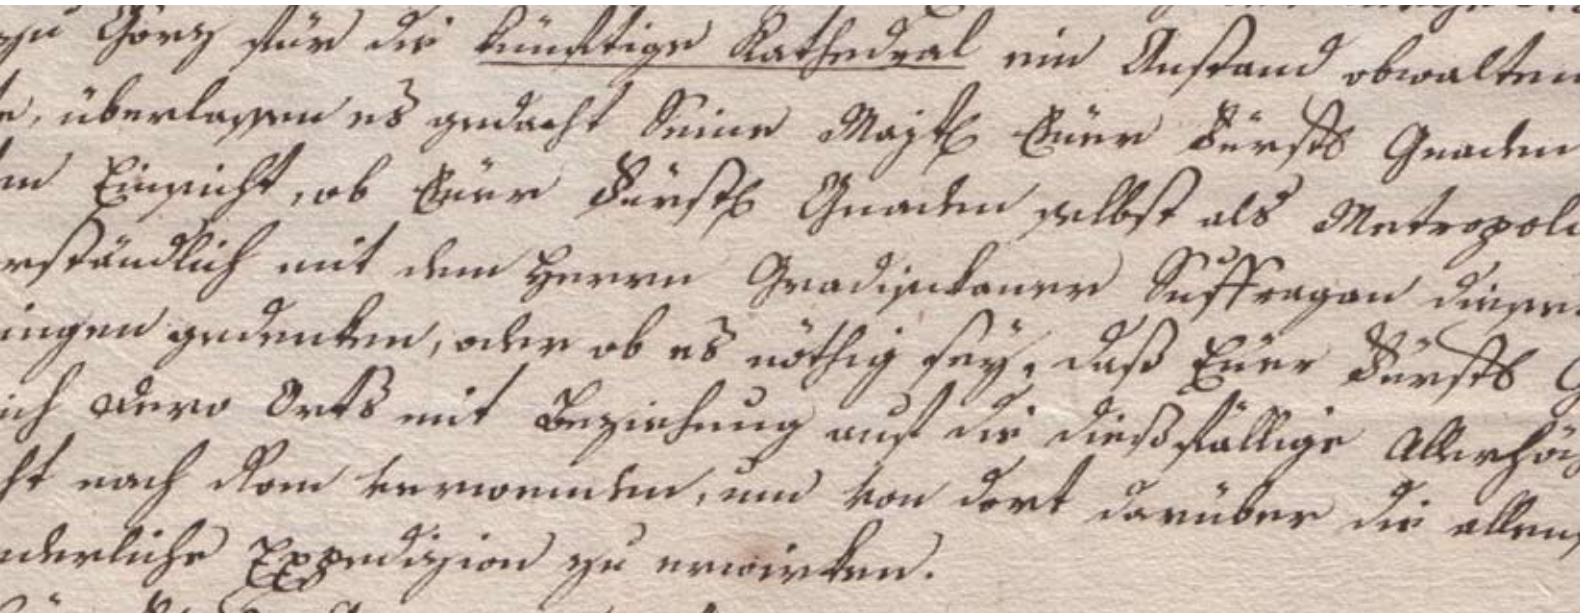 zu Görz für die künftige Kathedral ein Anstand obwalten
te, überlassen es gedacht Seine Majtt Euer Fürstl Gnaden
en Einsicht, ob Euer Fürstl Gnaden selbst als Metropoli
rständlich mit dem Herrn Gradiskaner Suffragan diese
ingen gedenken, oder ob es nöthig sey, daß Euer Fürstl G
ich Dero Orts mit Beziehung auf die dießfällige Allerhöch
ht nach Rom verwenden, um von dort darüber die allenf
rderliche Expedizion zu erwirken.